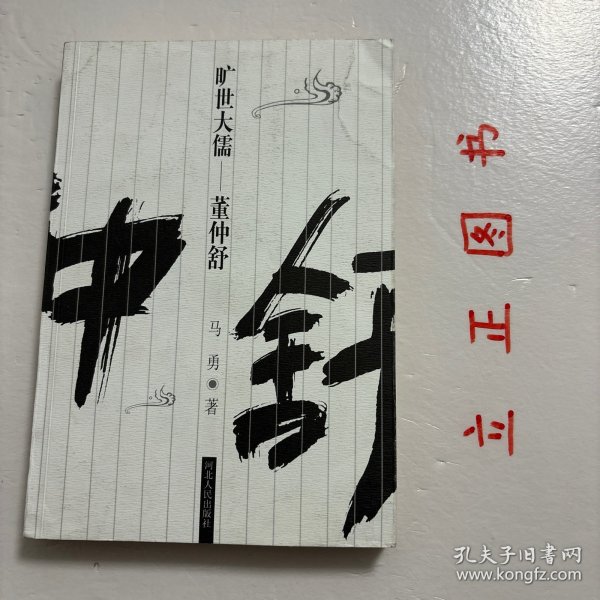 旷世大儒——董仲舒
马勇◉著
仲舒
河北人民出版社
立正图书
孔夫子旧书网
www.kongfz.com